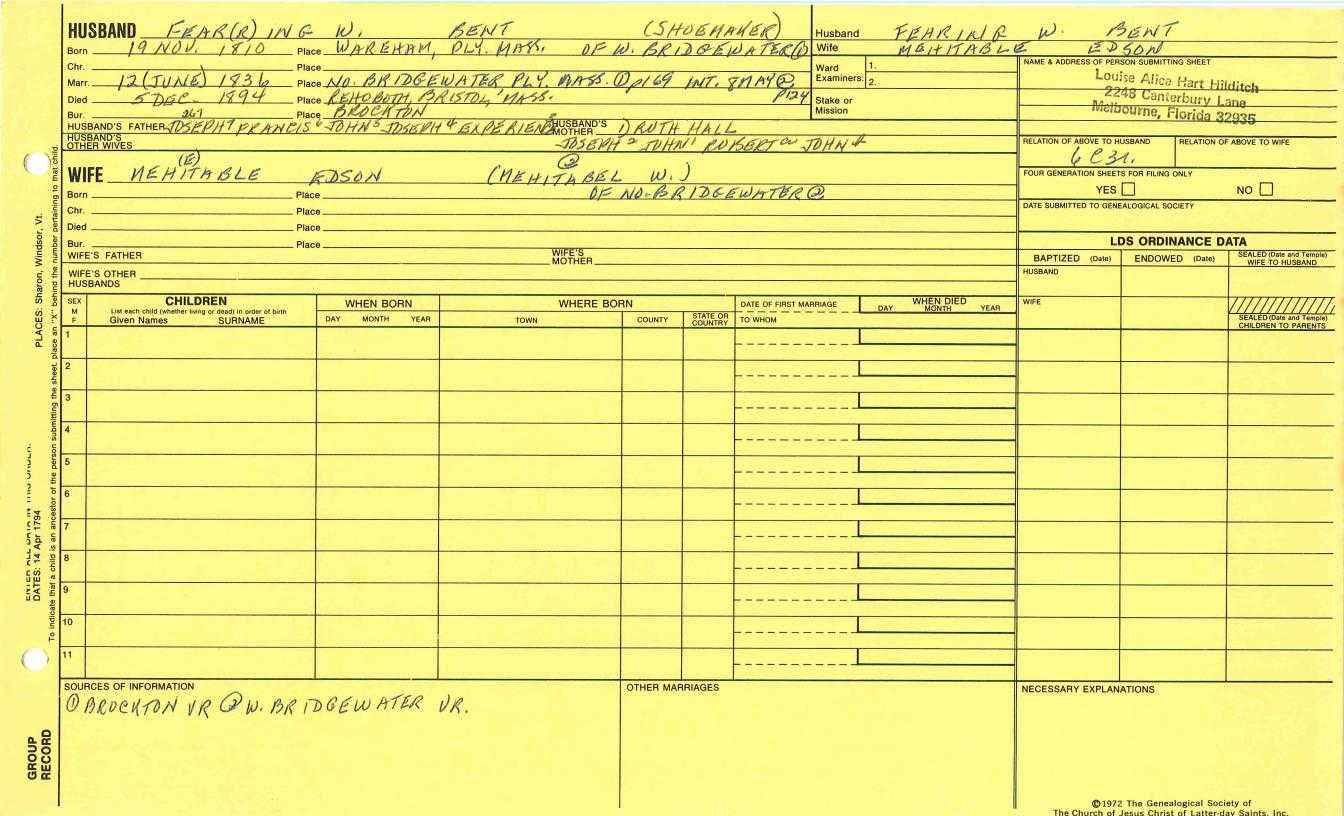 HUSBAND FEAR(R)ING W. BENT (SHOEMAKER)
Born 19 NOV. 1810 Place WAREHAM, PLY. MASS. OF W. BRIDGEWATER①
Chr. Place
Marr. 12(JUNE) 1836 Place NO. BRIDGEWATER PLY. MASS. ① p169 INT. 8MAY②, P124
Died 5 DEC- 1894 Place REHOBOTH, BRISTOL, MASS.
Bur. Place BROCKTON
HUSBAND'S FATHER JOSEPH FRANCIS JOHN⁵ JOSEPH⁴ EXPERIENCE HUSBAND'S MOTHER RUTH HALL
HUSBAND'S OTHER WIVES JOSEPH² JOHN¹ ROBERT JOHN
Husband FEARING W. BENT
Wife MEHITABLE EDSON
Ward Examiners: 1.
2.
Stake or Mission
NAME & ADDRESS OF PERSON SUBMITTING SHEET
Louise Alice Hart Hilditch
2248 Canterbury Lane
Melbourne, Florida 32935
RELATION OF ABOVE TO HUSBAND RELATION OF ABOVE TO WIFE
6C3r.
FOUR GENERATION SHEETS FOR FILING ONLY
YES NO
DATE SUBMITTED TO GENEALOGICAL SOCIETY
(E) ②
WIFE MEHITABLE EDSON (MEHITABEL W.)
Born Place OF NO. BRIDGEWATER②
Chr. Place
Died Place
Bur. Place
WIFE'S FATHER WIFE'S MOTHER
WIFE'S OTHER HUSBANDS
LDS ORDINANCE DATA
BAPTIZED (Date) ENDOWED (Date) SEALED (Date and Temple) WIFE TO HUSBAND
HUSBAND
WIFE
SEALED (Date and Temple) CHILDREN TO PARENTS
SEX M F
CHILDREN
List each child (whether living or dead) in order of birth
Given Names SURNAME
WHEN BORN
DAY MONTH YEAR
WHERE BORN
TOWN COUNTY STATE OR COUNTRY
DATE OF FIRST MARRIAGE
TO WHOM
WHEN DIED
DAY MONTH YEAR
1
2
3
4
5
6
7
8
9
10
11
SOURCES OF INFORMATION
① BROCKTON VR ② W. BRIDGEWATER VR.
OTHER MARRIAGES
NECESSARY EXPLANATIONS
©1972 The Genealogical Society of
The Church of Jesus Christ of Latter-day Saints, Inc.
PLACES: Sharon, Windsor, Vt.
ENTER ALL DATA IN THIS ORDER:
DATES: 14 Apr 1794
To indicate that a child is an ancestor of the person submitting the sheet, place an "X" behind the number pertaining to that child.
GROUP RECORD